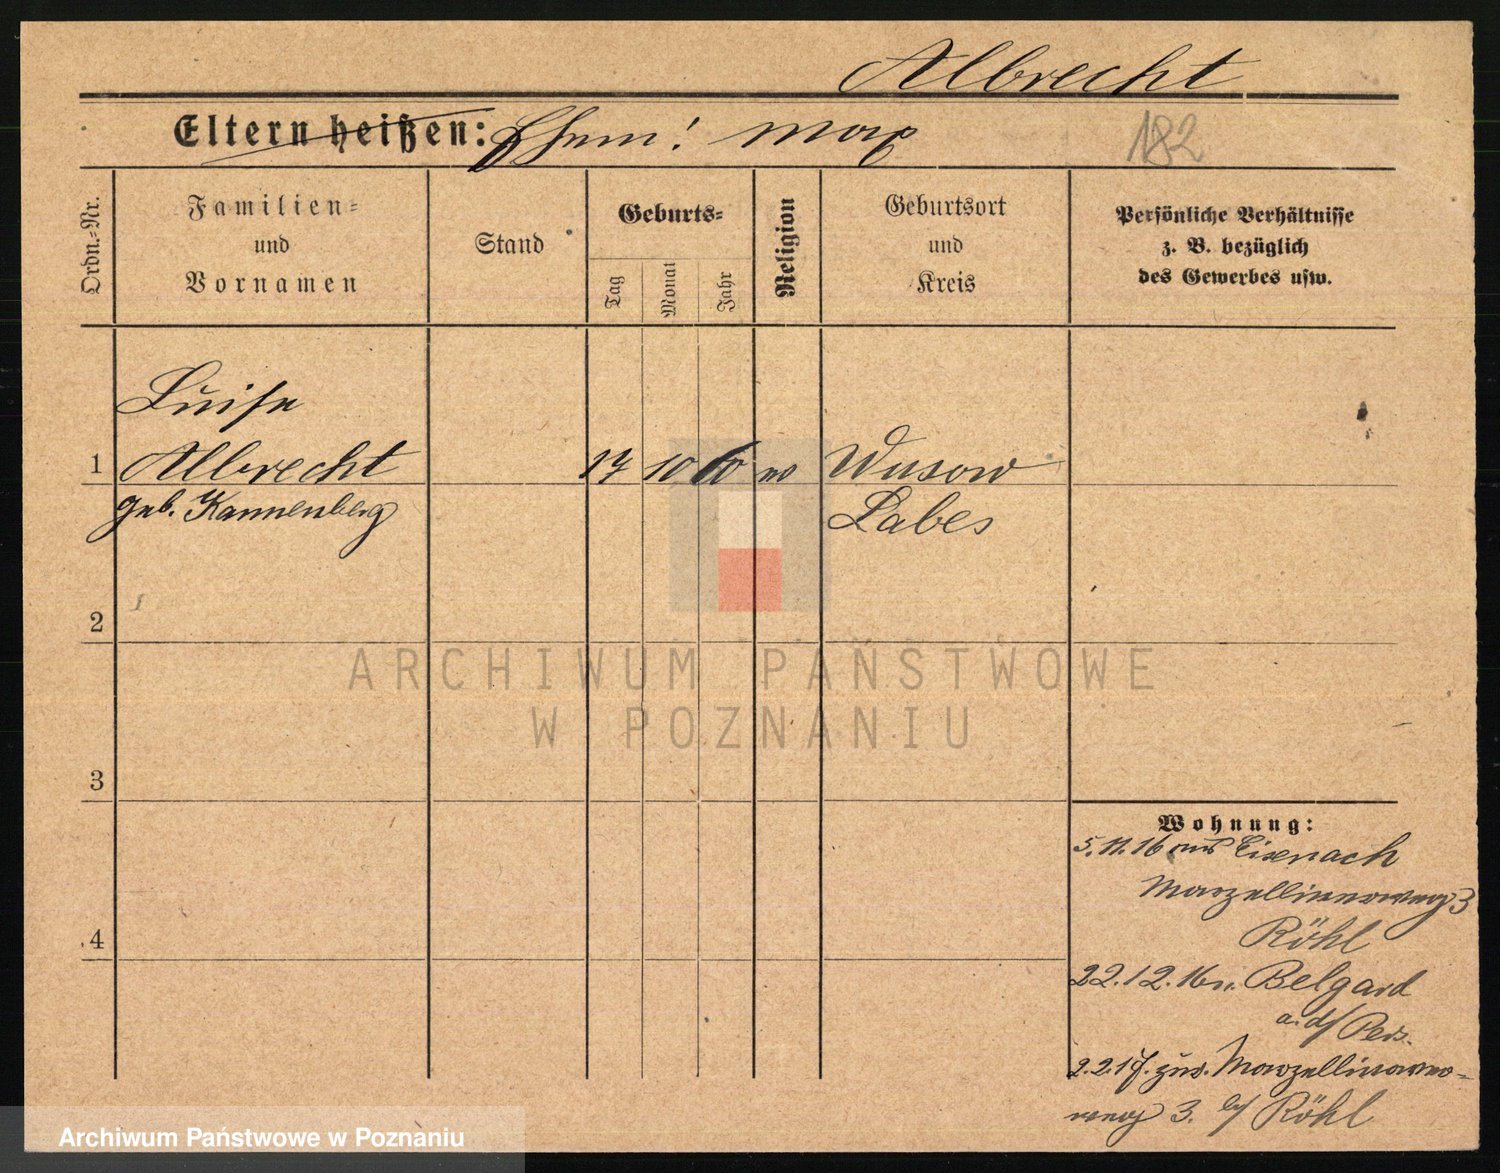 Albrecht
Eltern heißen: Ehem! Max
182
Ordn.-Nr.
Familien-
und
Vornamen
Stand
Geburts-
Tag
Monat
Jahr
Religion
Geburtsort
und
Kreis
Persönliche Verhältnisse
z. B. bezüglich
des Gewerbes usw.
Luise
1 Albrecht 17 10 60 Wusow
geb. Kannenberg Labes
2
3
4
Wohnung:
5.11.16 aus Eisenach
Marzellinerweg 3
Röhl
22.12.16 n. Belgard
a. d/ Pers.
2.2.17. zur. Marzelliner-
weg 3. b/ Röhl
ARCHIWUM PAŃSTWOWE
W POZNANIU
Archiwum Państwowe w Poznaniu